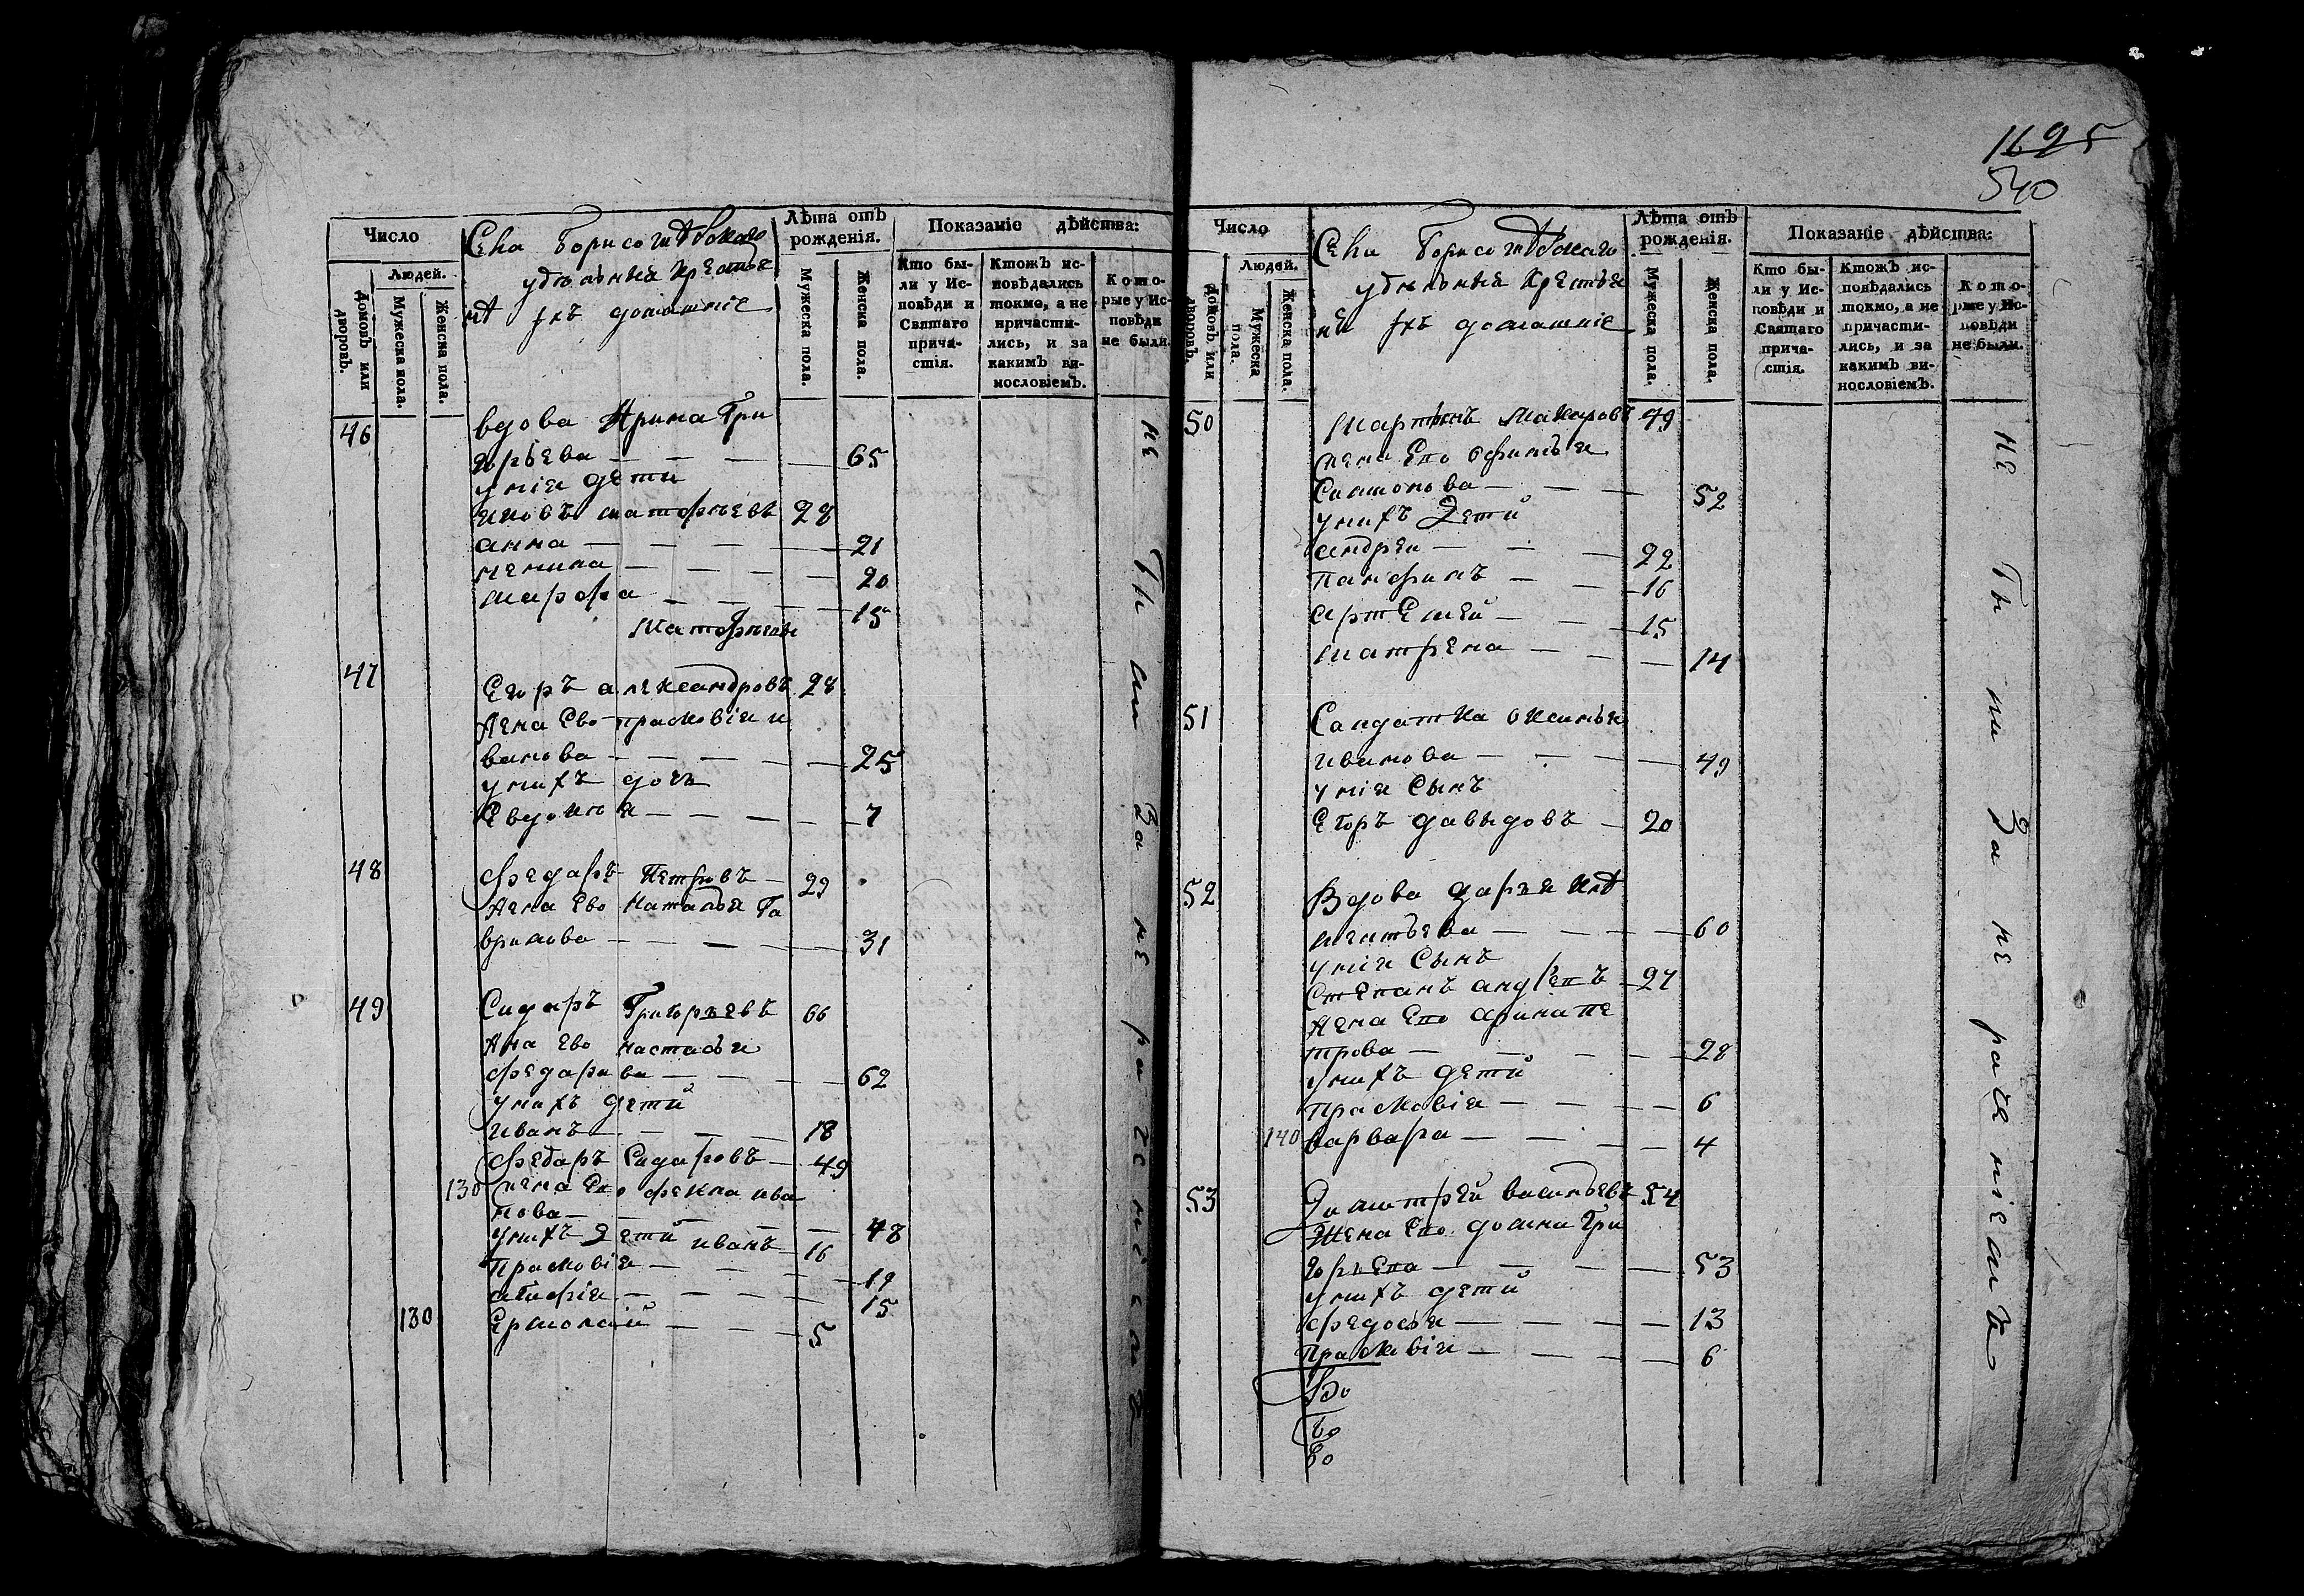 1695
540
Число
Людей.
Домовъ или дворовъ.
Мужеска пола.
Женска пола.
Села Борисоглѣбскаго
удѣльныя крестья
нѣ ихъ домашніе
Лѣта отъ рожденія.
Мужеска пола.
Женска пола.
Показаніе дѣйства:
Кто бы-
ли у Ис-
повѣди и
Святаго
прича-
стія.
Ктожъ ис-
повѣдались
токмо, а не
причасти-
лись, и за
какимъ ви-
нословіемъ.
Кото-
рые у Ис-
повѣди
не были.
46 вдова Ирина Гри
горьева — — — 65
у нія дети
матфеевъ 28
анна — — — 21
20
марфа — — — 15
Матфеевы
47 Егоръ александровъ 28
жена Ево прасковія и
ванова — — — 25
у нихъ дочь
Евдокия — — — 7
48 федаръ Петровъ — 29
жена Ево Наталья Га
врилова — — — 31
49 Сидаръ Григорьевъ 66
жна Ево настасья
федарова — — — 62
у нихъ дети
иванъ — — — 18
федаръ Сидаровъ — 49
130 жена Его фекла ива
нова — — — 48
у нихъ Дети иванъ — 16
Прасковія — — — 19
— — — 15
130 Ермолай — — — 5
не бы ли за не раченіемъ
Число
Людей.
Домовъ или дворовъ.
Мужеска пола.
Женска пола.
Села Борисоглѣбскаго
удѣльныя крестья
нѣ ихъ домашніе
Лѣта отъ рожденія.
Мужеска пола.
Женска пола.
Показаніе дѣйства:
Кто бы-
ли у Ис-
повѣди и
Святаго
прича-
стія.
Ктожъ ис-
повѣдались
токмо, а не
причасти-
лись, и за
какимъ ви-
нословіемъ.
Кото-
рые у Ис-
повѣди
не были.
50 Мартынъ Макаровъ 49
жена Его офимья
— — — 52
у нихъ Дети
андрей — — — 22
Панфилъ — — — 16
артемей — — — 15
матрена — — — 14
51 Салдатка оксинья
иванова — — — 49
у нія Сынъ
Егоръ давыдовъ — 20
52 Вдова дарья
— — — 60
у нія Сынъ
Степанъ 27
жена Его арина пе
трова — — — 28
у нихъ дети
прасковія — — — 6
140 варвара — — — 4
53 Димитрей васильевъ 54
Жена Его домна Гри
горьева — — — 53
у нихъ дети
федосья — — — 13
прасковія — — — 6
Во
Во
не бы ли за не раченіемъ